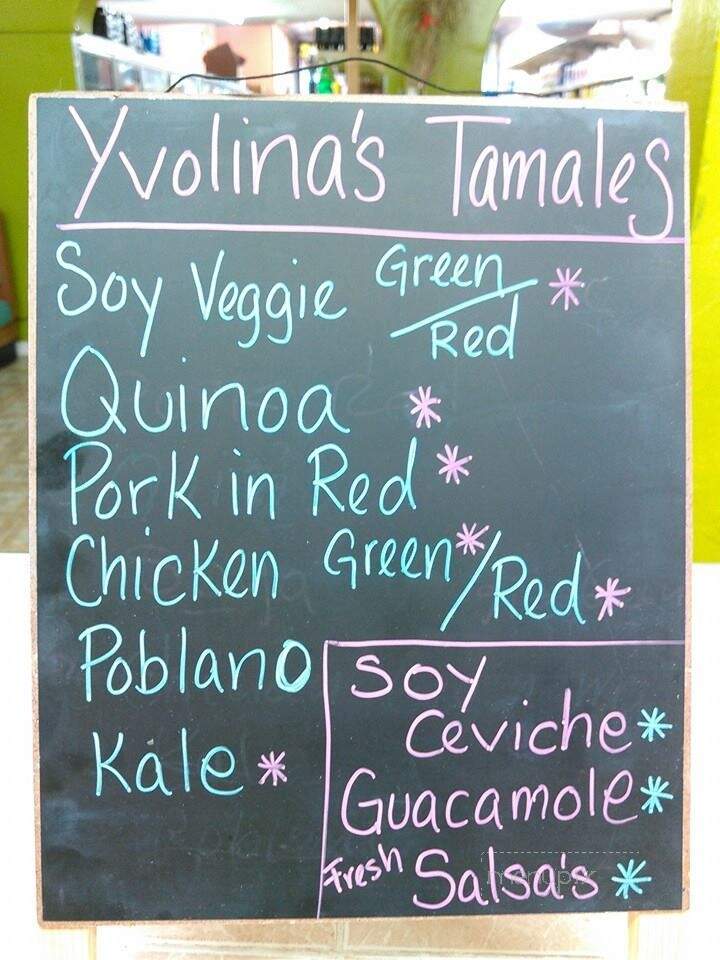 Yvolina's Tamales
Soy Veggie Green/Red *
Quinoa *
Pork in Red *
Chicken Green*/Red *
Poblano
Kale *
Soy
Ceviche *
Guacamole *
Fresh Salsa's *